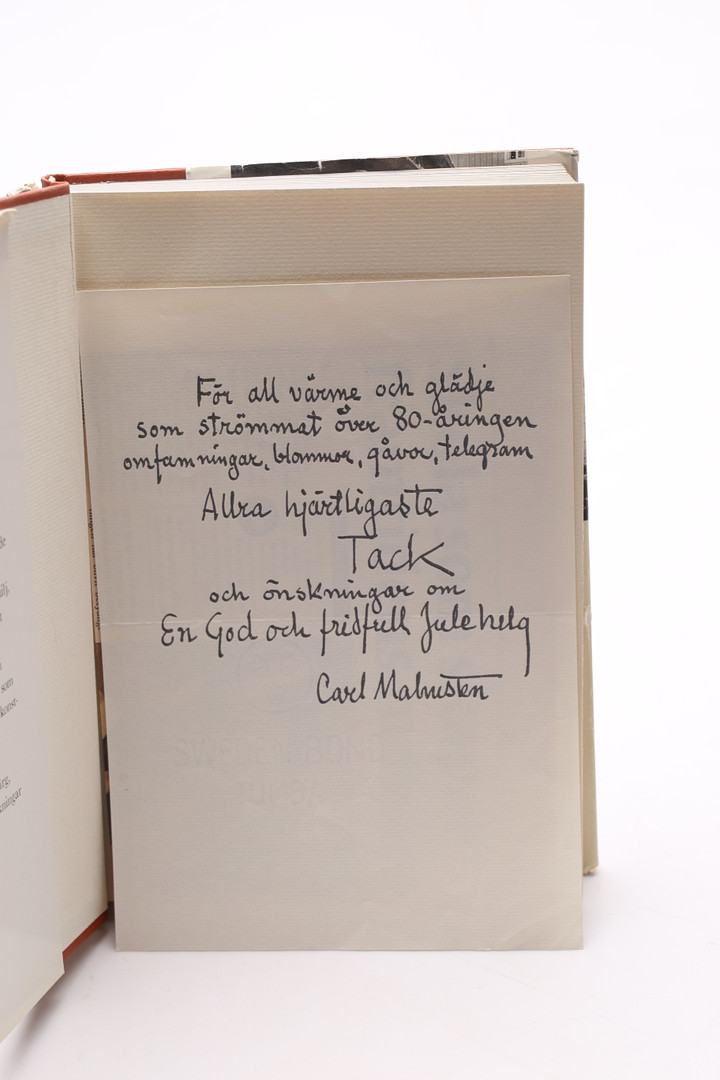 För all värme och glädje
som strömmat över 80-åringen
omfamningar, blommor, gåvor, telegram
Allra hjärtligaste
Tack
och önskningar om
En God och fridfull Julehelg
Carl Malmsten
som
konst-
ningar